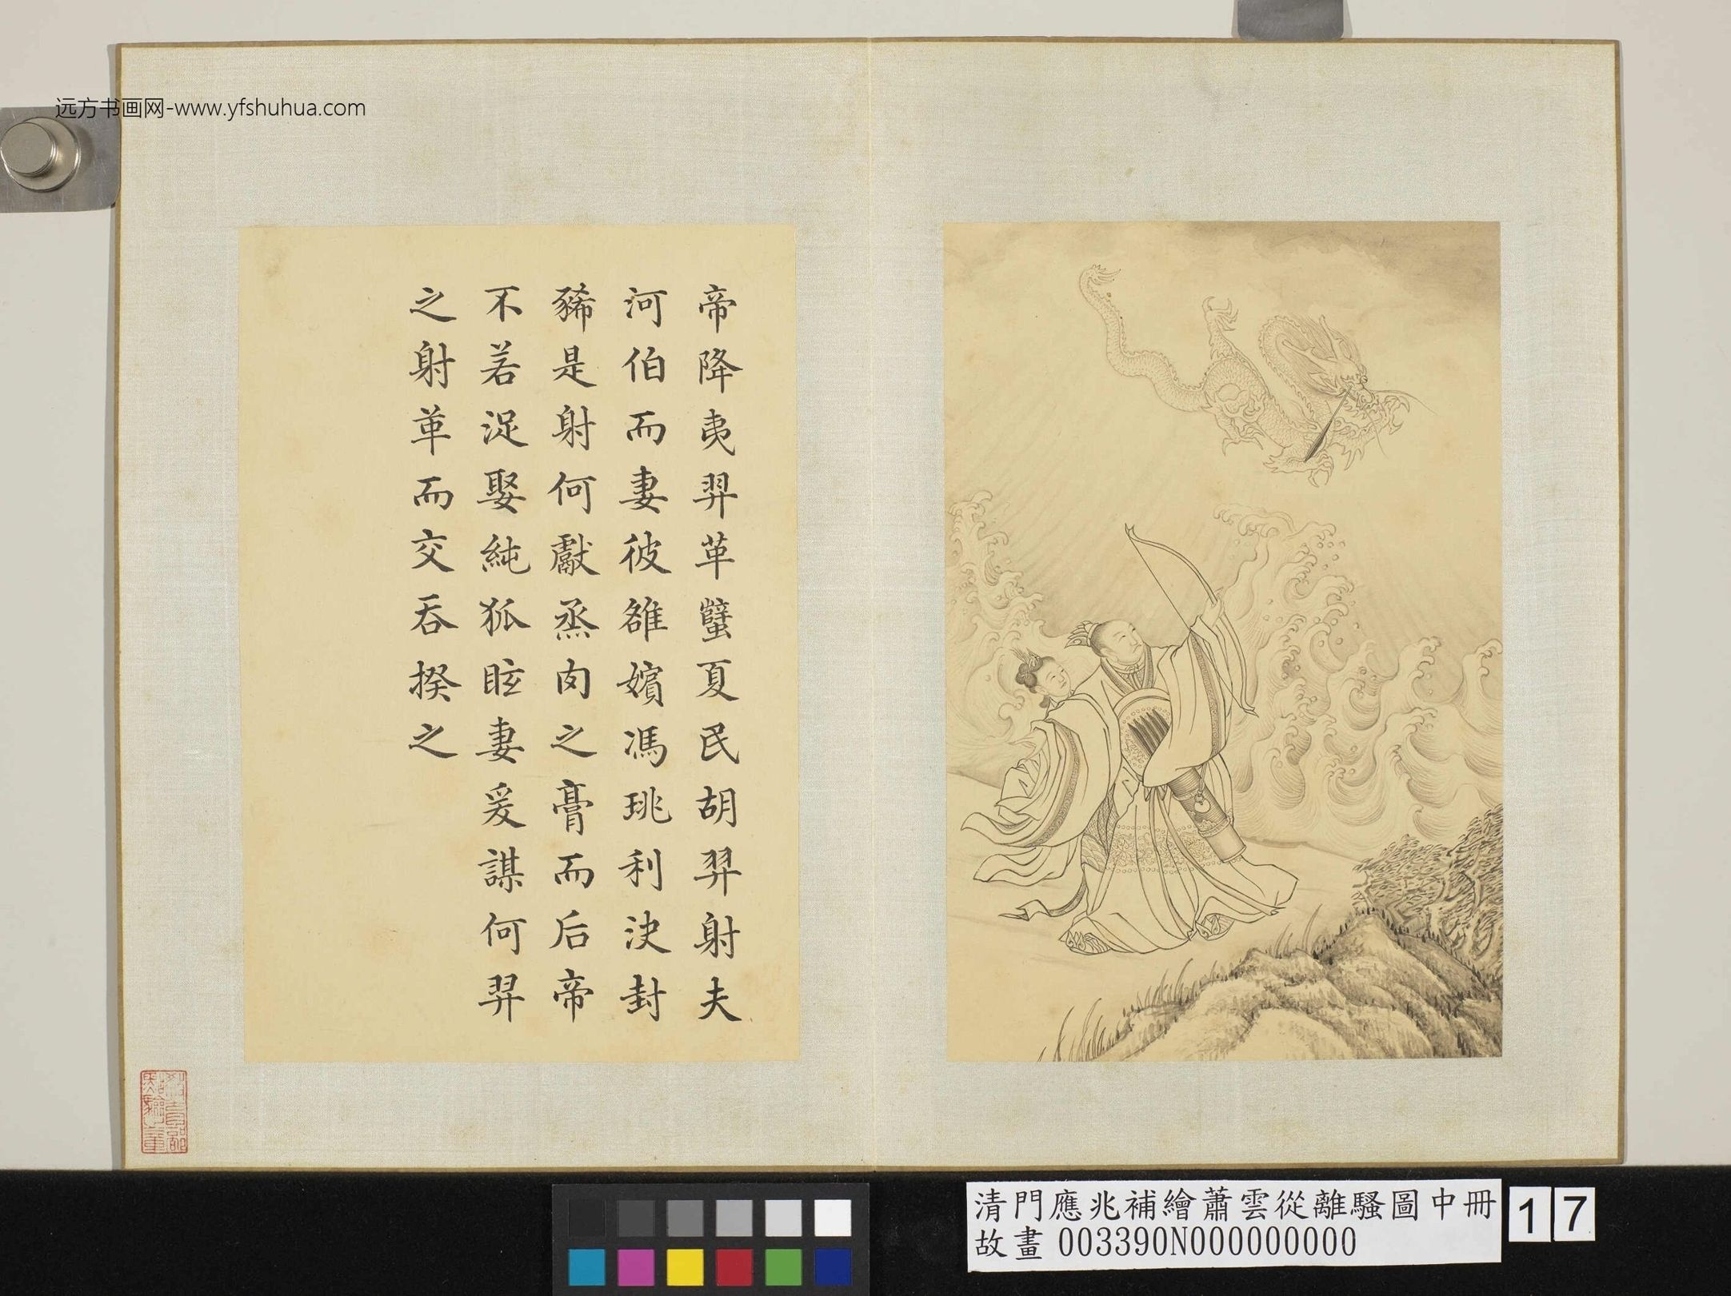 远方书画网-www.yfshuhua.com
帝降夷羿革蠥夏民胡羿射夫
河伯而妻彼雒嬪馮珧利決封
豨是射何獻烝肉之膏而后帝
不若浞娶純狐眩妻爰謀何羿
之射革而交吞揆之
清門應兆補繪蕭雲從離騷圖中冊
故畫 003390N000000000
17